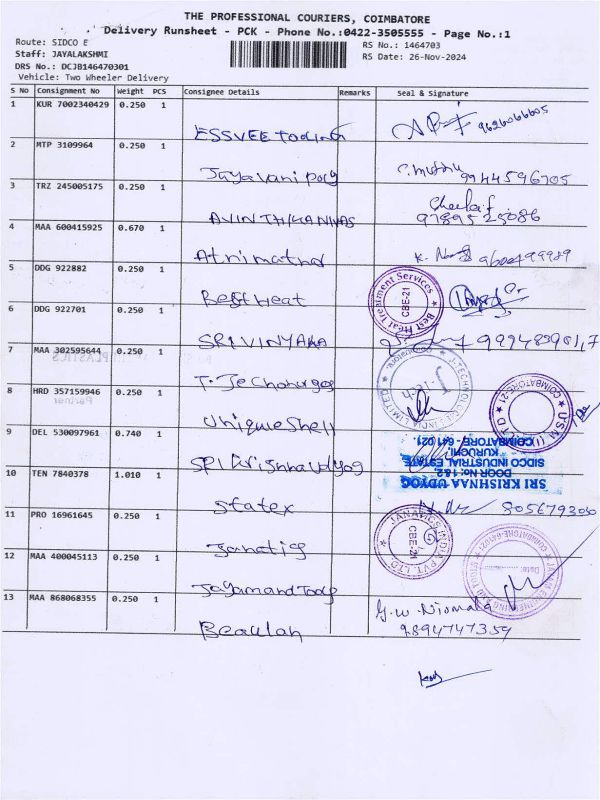 THE PROFESSIONAL COURIERS, COIMBATORE
Delivery Runsheet - PCK - Phone No.:0422-3505555 - Page No.:1
Route: SIDCO E
RS No.: 1464703
Staff: JAYALAKSHMI
RS Date: 26-Nov-2024
DRS No.: DCJB146470301
Vehicle: Two Wheeler Delivery
S No Consignment No Weight PCS Consignee Details Remarks Seal & Signature
1 KUR 7002340429 0.250 1
ESSVEE Tooling 9626066605
2 MTP 3109964 0.250 1
Jayavani poly 9944596705
3 TRZ 245005175 0.250 1
AVINTHIKANIVAS 9789525086
4 MAA 600415925 0.670 1
9600499989
5 DDG 922882 0.250 1
Best Heat
Best Heat Treatment Services CBE-21
6 DDG 922701 0.250 1
SRI VINYAKA
7 MAA 302595644 0.250 1
8 HRD 357159946 0.250 1
Unique Shell
COIMBATORE-21
9 DEL 530097961 0.740 1
SRI Krishna Udyog
SRI KRISHNAA UDYOG
DOOR No: 1&2,
SIDCO INDUSTRIAL ESTATE
KURUCHI,
COIMBATORE - 641 021.
10 TEN 7840378 1.010 1
Statex
11 PRO 16961645 0.250 1
JANATICS INDIA PVT. LTD. CBE-21
12 MAA 400045113 0.250 1
13 MAA 868068355 0.250 1
9894747359